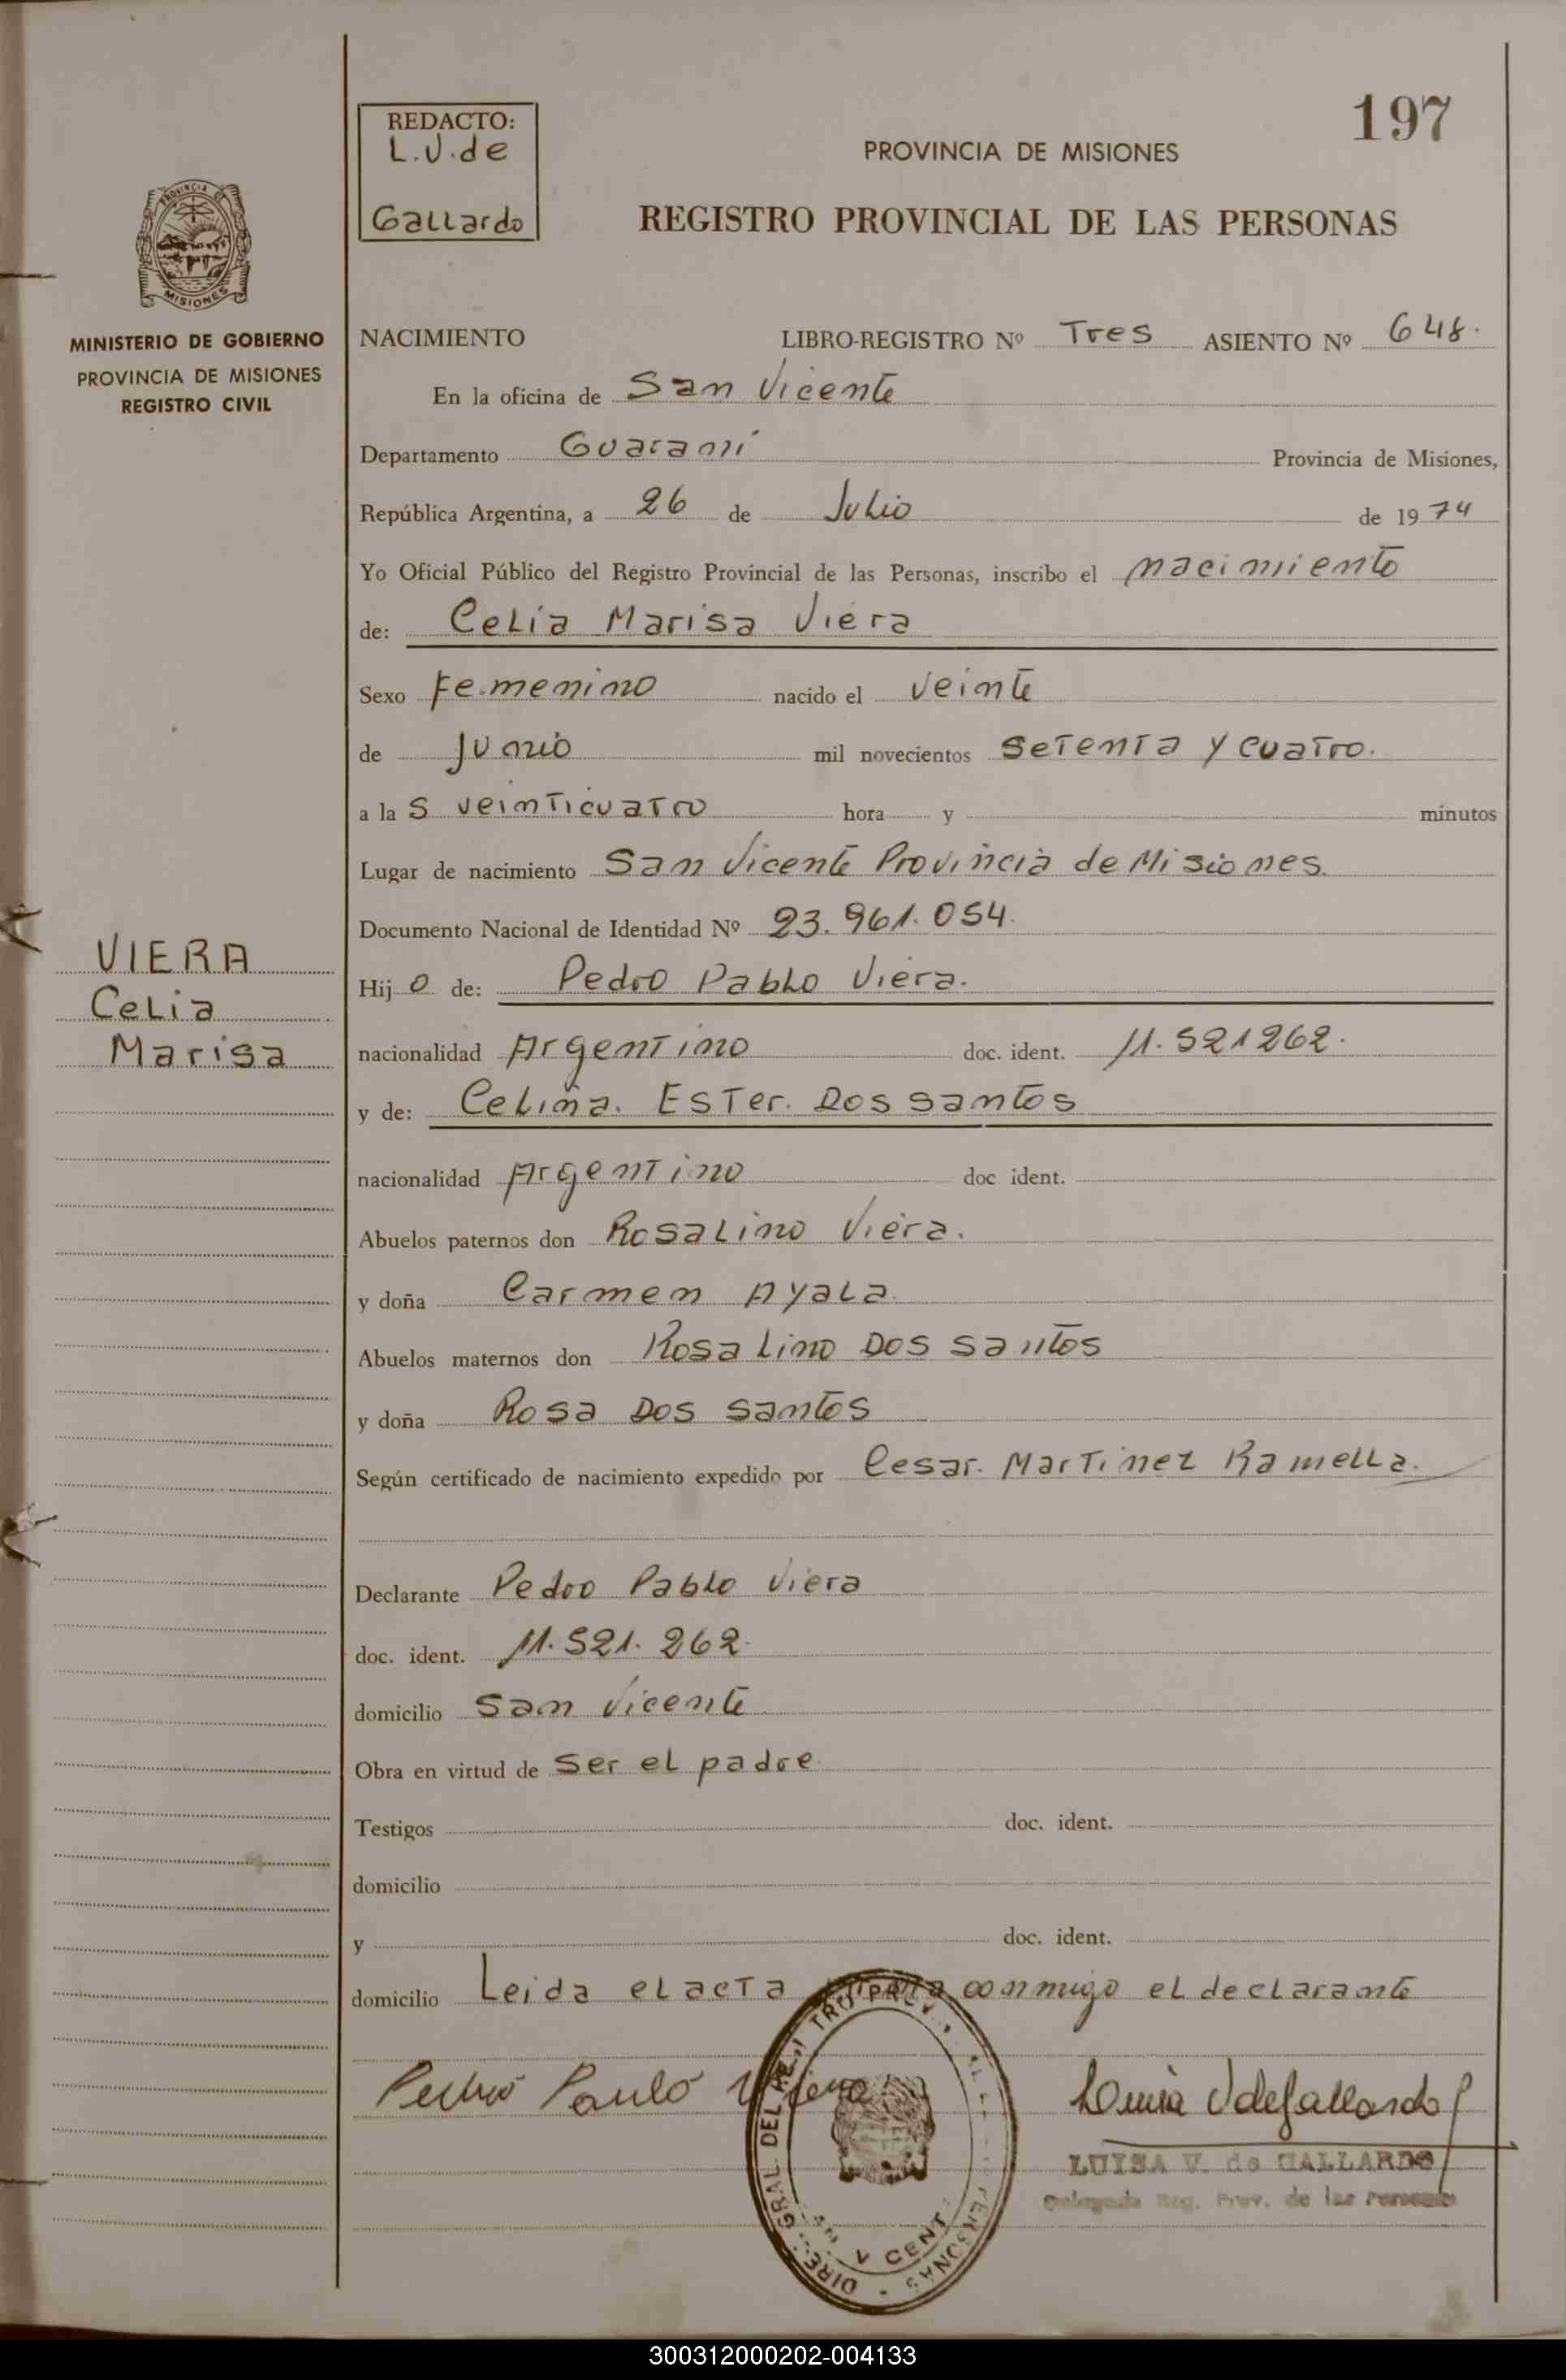 197
REDACTO:
L.V.de
Gallardo
PROVINCIA DE MISIONES
REGISTRO PROVINCIAL DE LAS PERSONAS
MISIONES
MINISTERIO DE GOBIERNO
PROVINCIA DE MISIONES
REGISTRO CIVIL
NACIMIENTO LIBRO-REGISTRO Nº Tres ASIENTO Nº 648.
En la oficina de San Vicente
Departamento Guaraní Provincia de Misiones,
República Argentina, a 26 de Julio de 1974
Yo Oficial Público del Registro Provincial de las Personas, inscribo el nacimiento
de: Celia Marisa Viera
Sexo Femenino nacido el veinte
de Junio mil novecientos setenta y cuatro.
a la s veinticuatro hora y minutos
Lugar de nacimiento San Vicente Provincia de Misiones.
Documento Nacional de Identidad Nº 23.961.054.
VIERA
Celia
Marisa
Hij o de: Pedro Pablo Viera.
nacionalidad Argentino doc. ident. 11.521262.
y de: Celina. Ester. Dos santos
nacionalidad Argentino doc ident.
Abuelos paternos don Rosalino Viera.
y doña Carmen Ayala.
Abuelos maternos don Rosalino Dos Santos
y doña Rosa Dos Santos
Según certificado de nacimiento expedido por Cesar. Martinez Ramella.
Declarante Pedro Pablo Viera
doc. ident. 11.521.262.
domicilio San Vicente
Obra en virtud de ser el padre.
Testigos doc. ident.
domicilio
y doc. ident.
domicilio Leida el acta conmigo el declarante
Pedro Paulo Viera
LUISA V. de GALLARDO
Delegada Reg. Prov. de las Personas
300312000202-004133